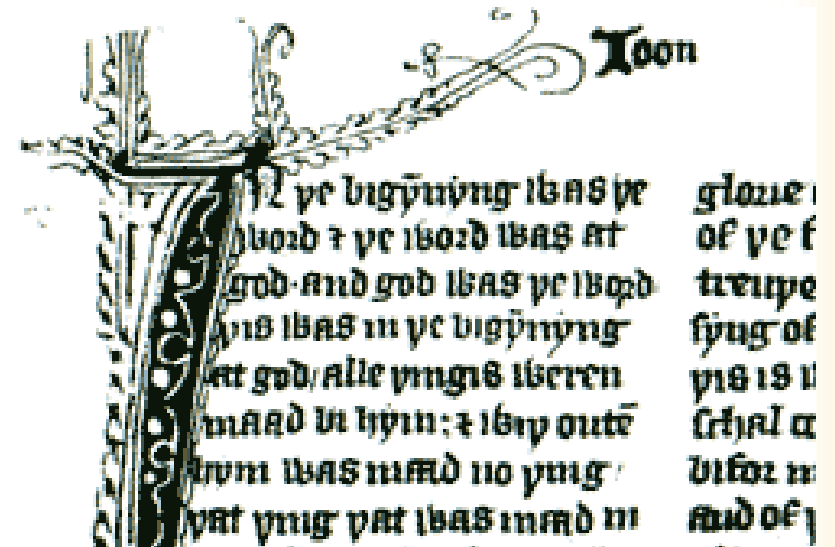 Joon
In þe bigȳnyng was þe
word ⁊ þe word was at
god· and god was þe word
þis was in þe bigȳnyng
at god/ alle þingis weren
maad bi hym: ⁊ wiþ outē
hym was maad no þing
þat þing þat was maad in
glorie
of þe f
treuþe
of
þis is
schal
bifor
and of